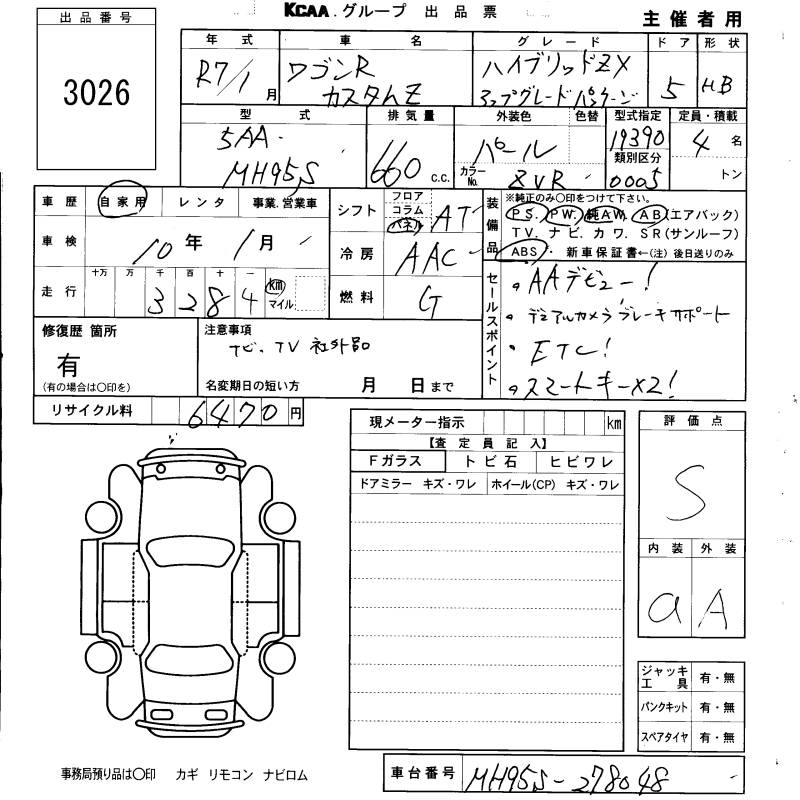 KCAA.グループ 出品票
主催者用
出品番号
3026
年式 車名 グレード ドア 形状
R7/1月 ワゴンR カスタムZ ハイブリッドZX アップグレードパッケージ 5 HB
型式 排気量 外装色 色替 型式指定 定員・積載
5AA-MH95S 660 c.c. パール 19390 4名
カラーNo. ZVR 類別区分 0005 トン
車歴 自家用 レンタ 事業.営業車
車検 10年 1月
走行 十万 万 千 百 十 一
3284 km マイル
シフト フロア コラム パネル AT
冷房 AAC
燃料 G
装備品 ※純正のみ○印をつけて下さい。
PS. PW. 純AW. AB(エアバック)
TV. ナビ. カワ. SR(サンルーフ)
ABS. 新車保証書←(注) 後日送りのみ
セールスポイント
・AAデビュー!
・デュアルカメラブレーキサポート
・ETC!
・スマートキー×2!
修復歴 箇所
有
(有の場合は○印を)
注意事項
ナビ、TV 社外品
名変期日の短い方 月 日まで
リサイクル料 6470円
現メーター指示 km
【査定員記入】
Fガラス トビ石 ヒビワレ
ドアミラー キズ・ワレ ホイール(CP) キズ・ワレ
評価点
S
内装 外装
a A
ジャッキ工具 有・無
パンクキット 有・無
スペアタイヤ 有・無
事務局預り品は○印 カギ リモコン ナビロム
車台番号 MH95S-278048